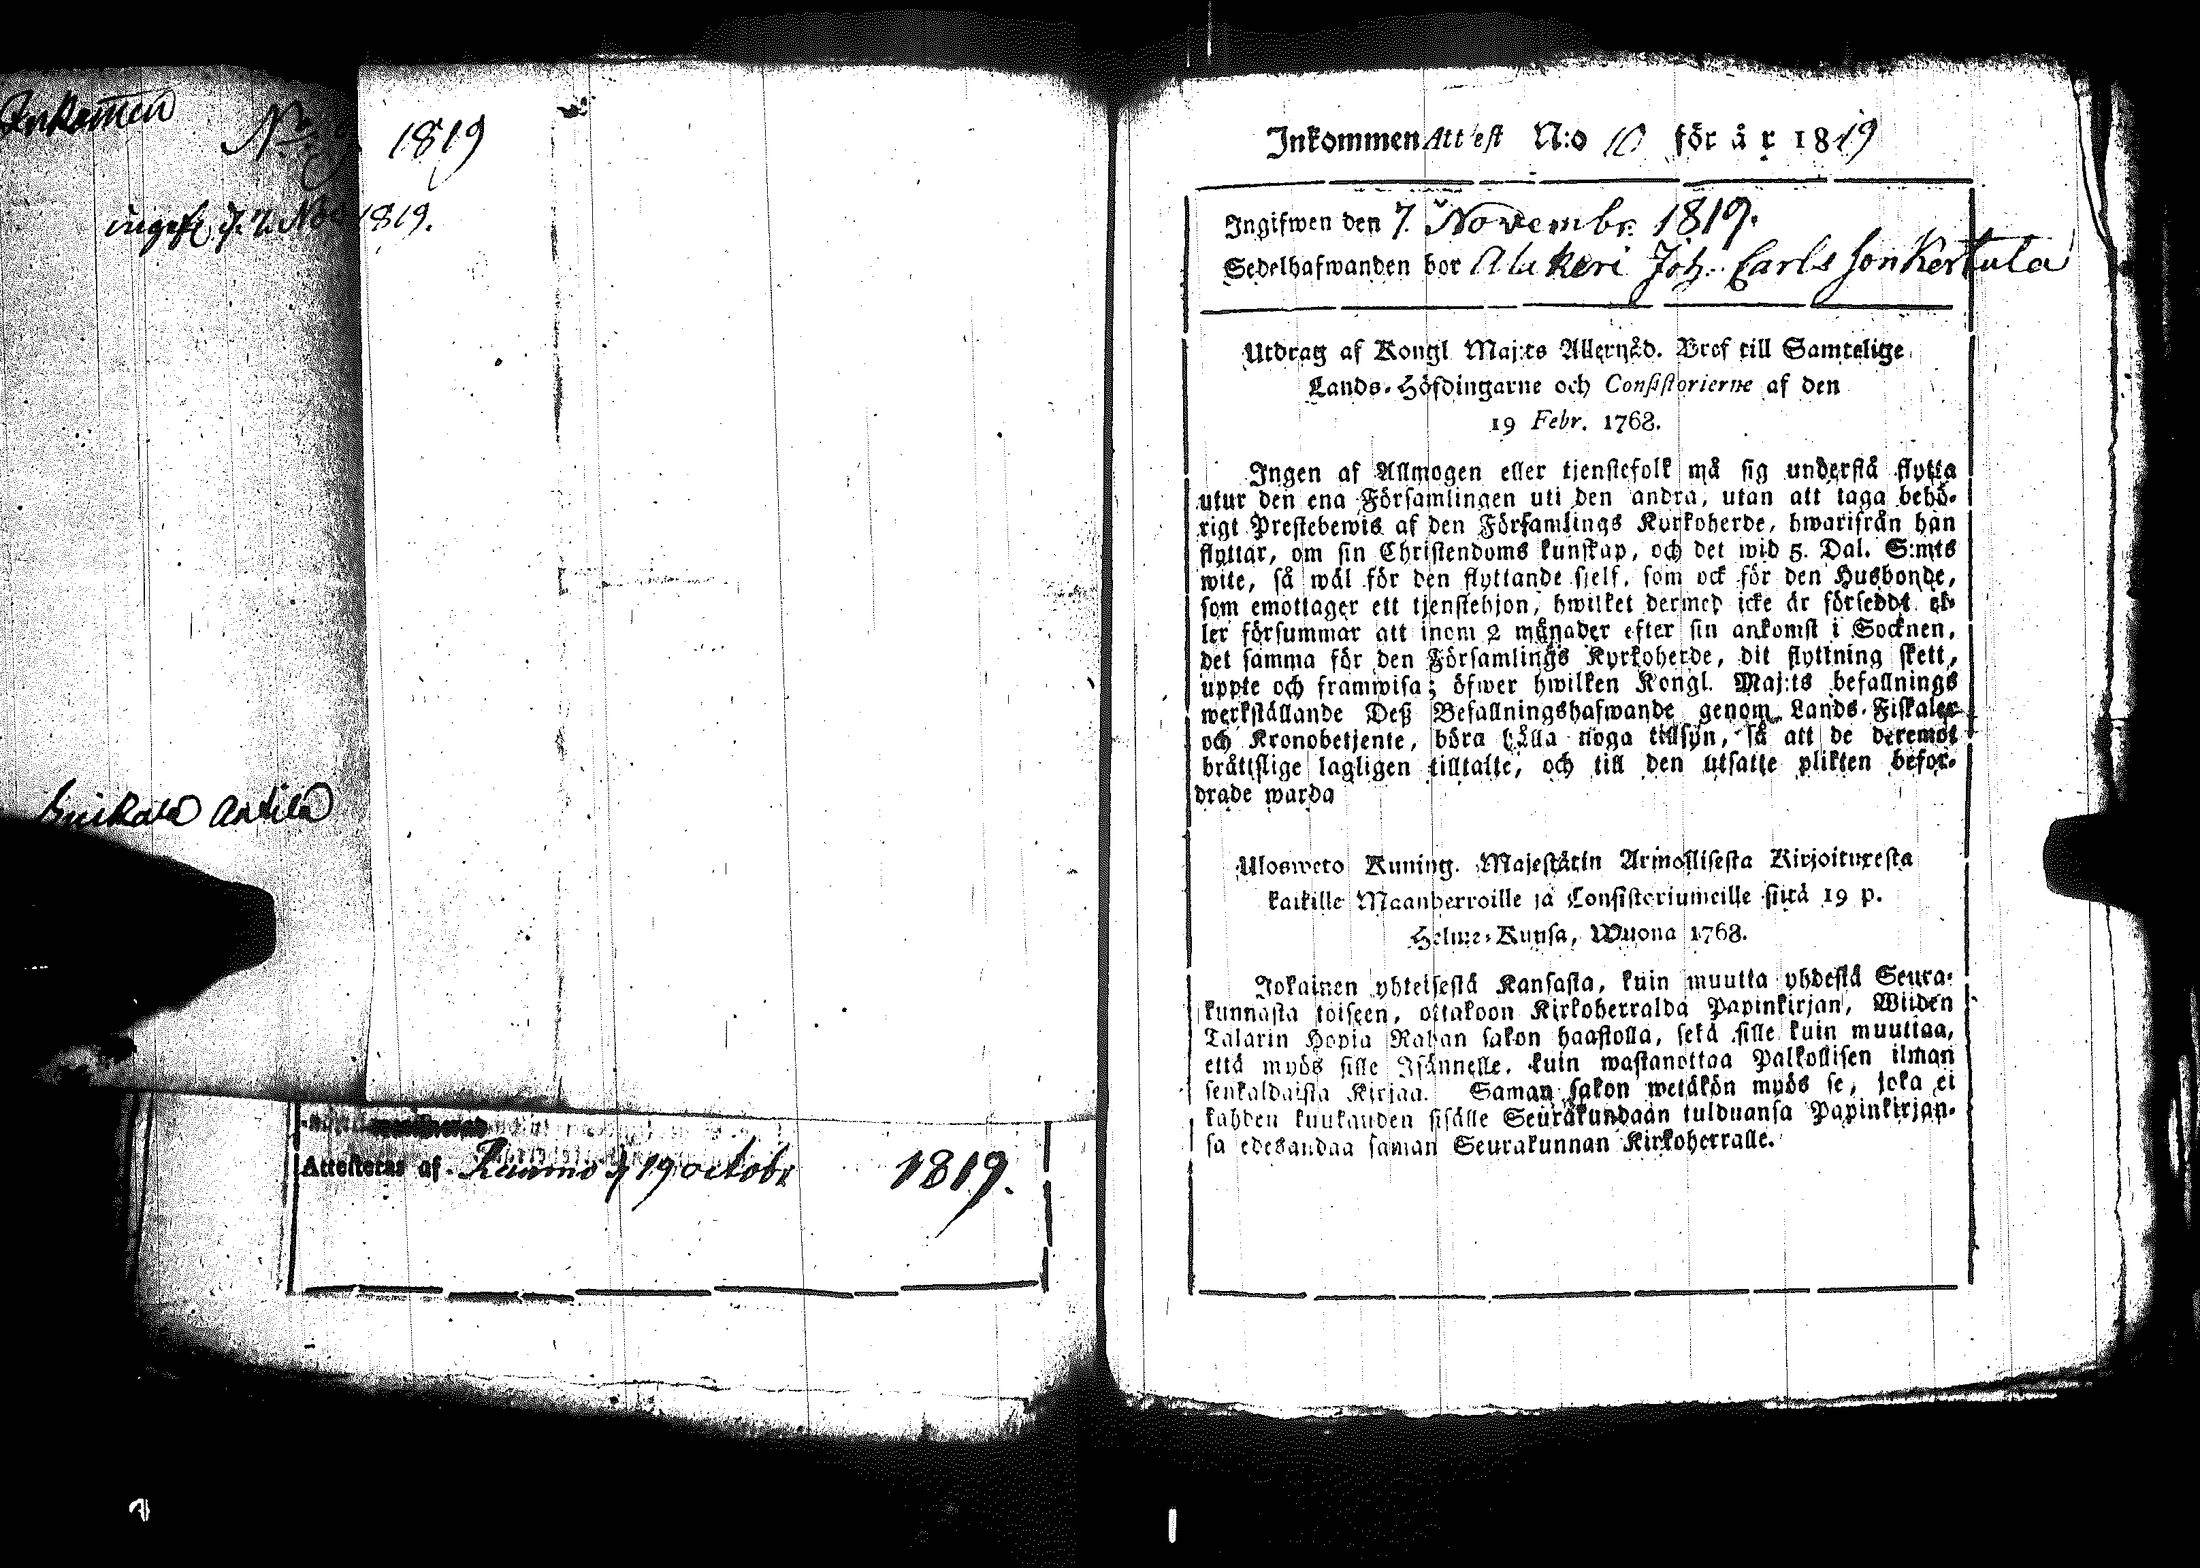 Inkomen
N:o 9. 1819
ingifv. d. 7. Nov. 1819.
Antila
Attesteras af. Raumo d 19 octobr 1819.
Inkommen Att'est N:o 10 för år 1819
Ingifwen den 7. Novembr. 1819.
Sedelhafwanden bor Alakeri Joh. Carlsson Kertula
Utdrag af Kongl. Maj:ts Allernåd. Bref till Samtelige
Lands-Höfdingarne och Consistorierne af den
19 Febr. 1768.
Ingen af Allmogen eller tjenstefolk må sig understå flytta
utur den ena Församlingen uti den andra, utan att taga behö-
rigt Prestebewis af den Församlings Kyrkoherde, hwarifrån han
flyttar, om sin Christendoms kunskap, och det wid 5. Dal. S:mts
wite, så wäl för den flyttande sjelf, som ock för den Husbonde,
som emottager ett tjenstehjon, hwilket dermed icke är försedd, el-
ler försummar att inom 2 månader efter sin ankomst i Socknen,
det samma för den Församlings Kyrkoherde, dit flyttning skett,
uppte och framwisa; öfwer hwilken Kongl. Maj:ts befallnings
werkställande Deß Befallningshafwande genom Lands-Fiskaler
och Kronobetjente, böra hålla noga tillsyn, så att de deremot
bråttslige lagligen tilltalte, och till den utsatte plikten befor-
drade warda
Ulosweto Kuning. Majestätin Armollisesta Kirjoituxesta
kaikille Maanherroille ja Consistoriumeille siitä 19 p.
Helme-Kuusa, Wuona 1768.
Jokainen yhteisestä Kansasta, kuin muutta yhdestä Seura-
kunnasta toiseen, ottakoon Kirkoherralda Papinkirjan, Wiiden
Talarin Hopia Rahan sakon haastolla, sekä sille kuin muuttaa,
että myös sille Isännelle, kuin wastanottaa Palkollisen ilman
senkaldaista Kirjaa. Saman sakon wetäkön myös se, joka ei
kahden kuukauden sisälle Seurakundaan tulduansa Papinkirjan-
sa edesandaa saman Seurakunnan Kirkoherralle.